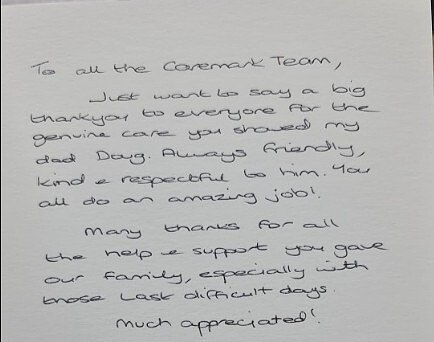 To all the Caremark Team,
Just want to say a big
thankyou to everyone for the
genuine care you showed my
dad Doug. Always friendly,
kind & respectful to him. You
all do an amazing job!
Many thanks for all
the help & support you gave
our family, especially with
those last difficult days.
Much appreciated!